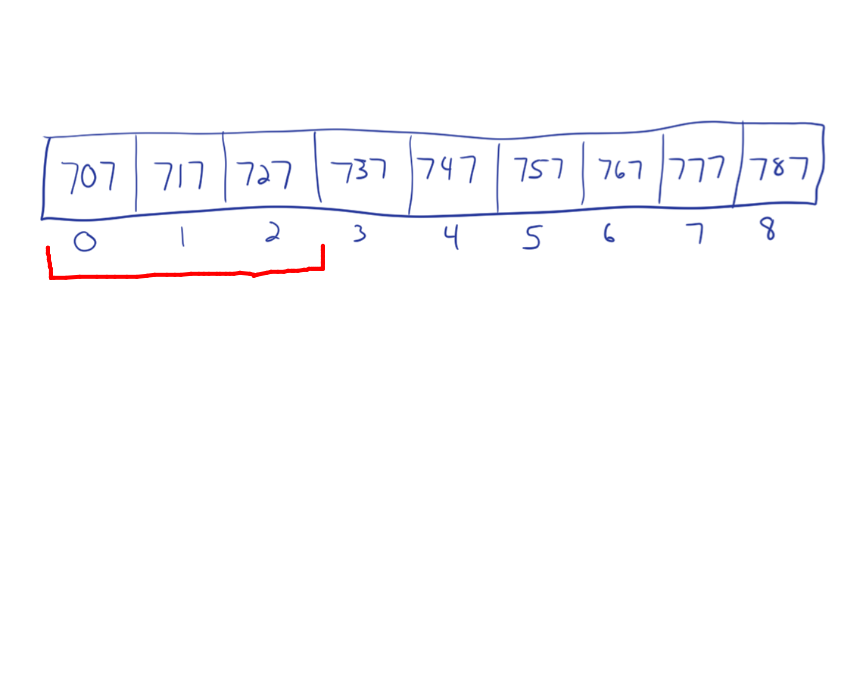 707 717 727 737 747 757 767 777 787
0 1 2 3 4 5 6 7 8